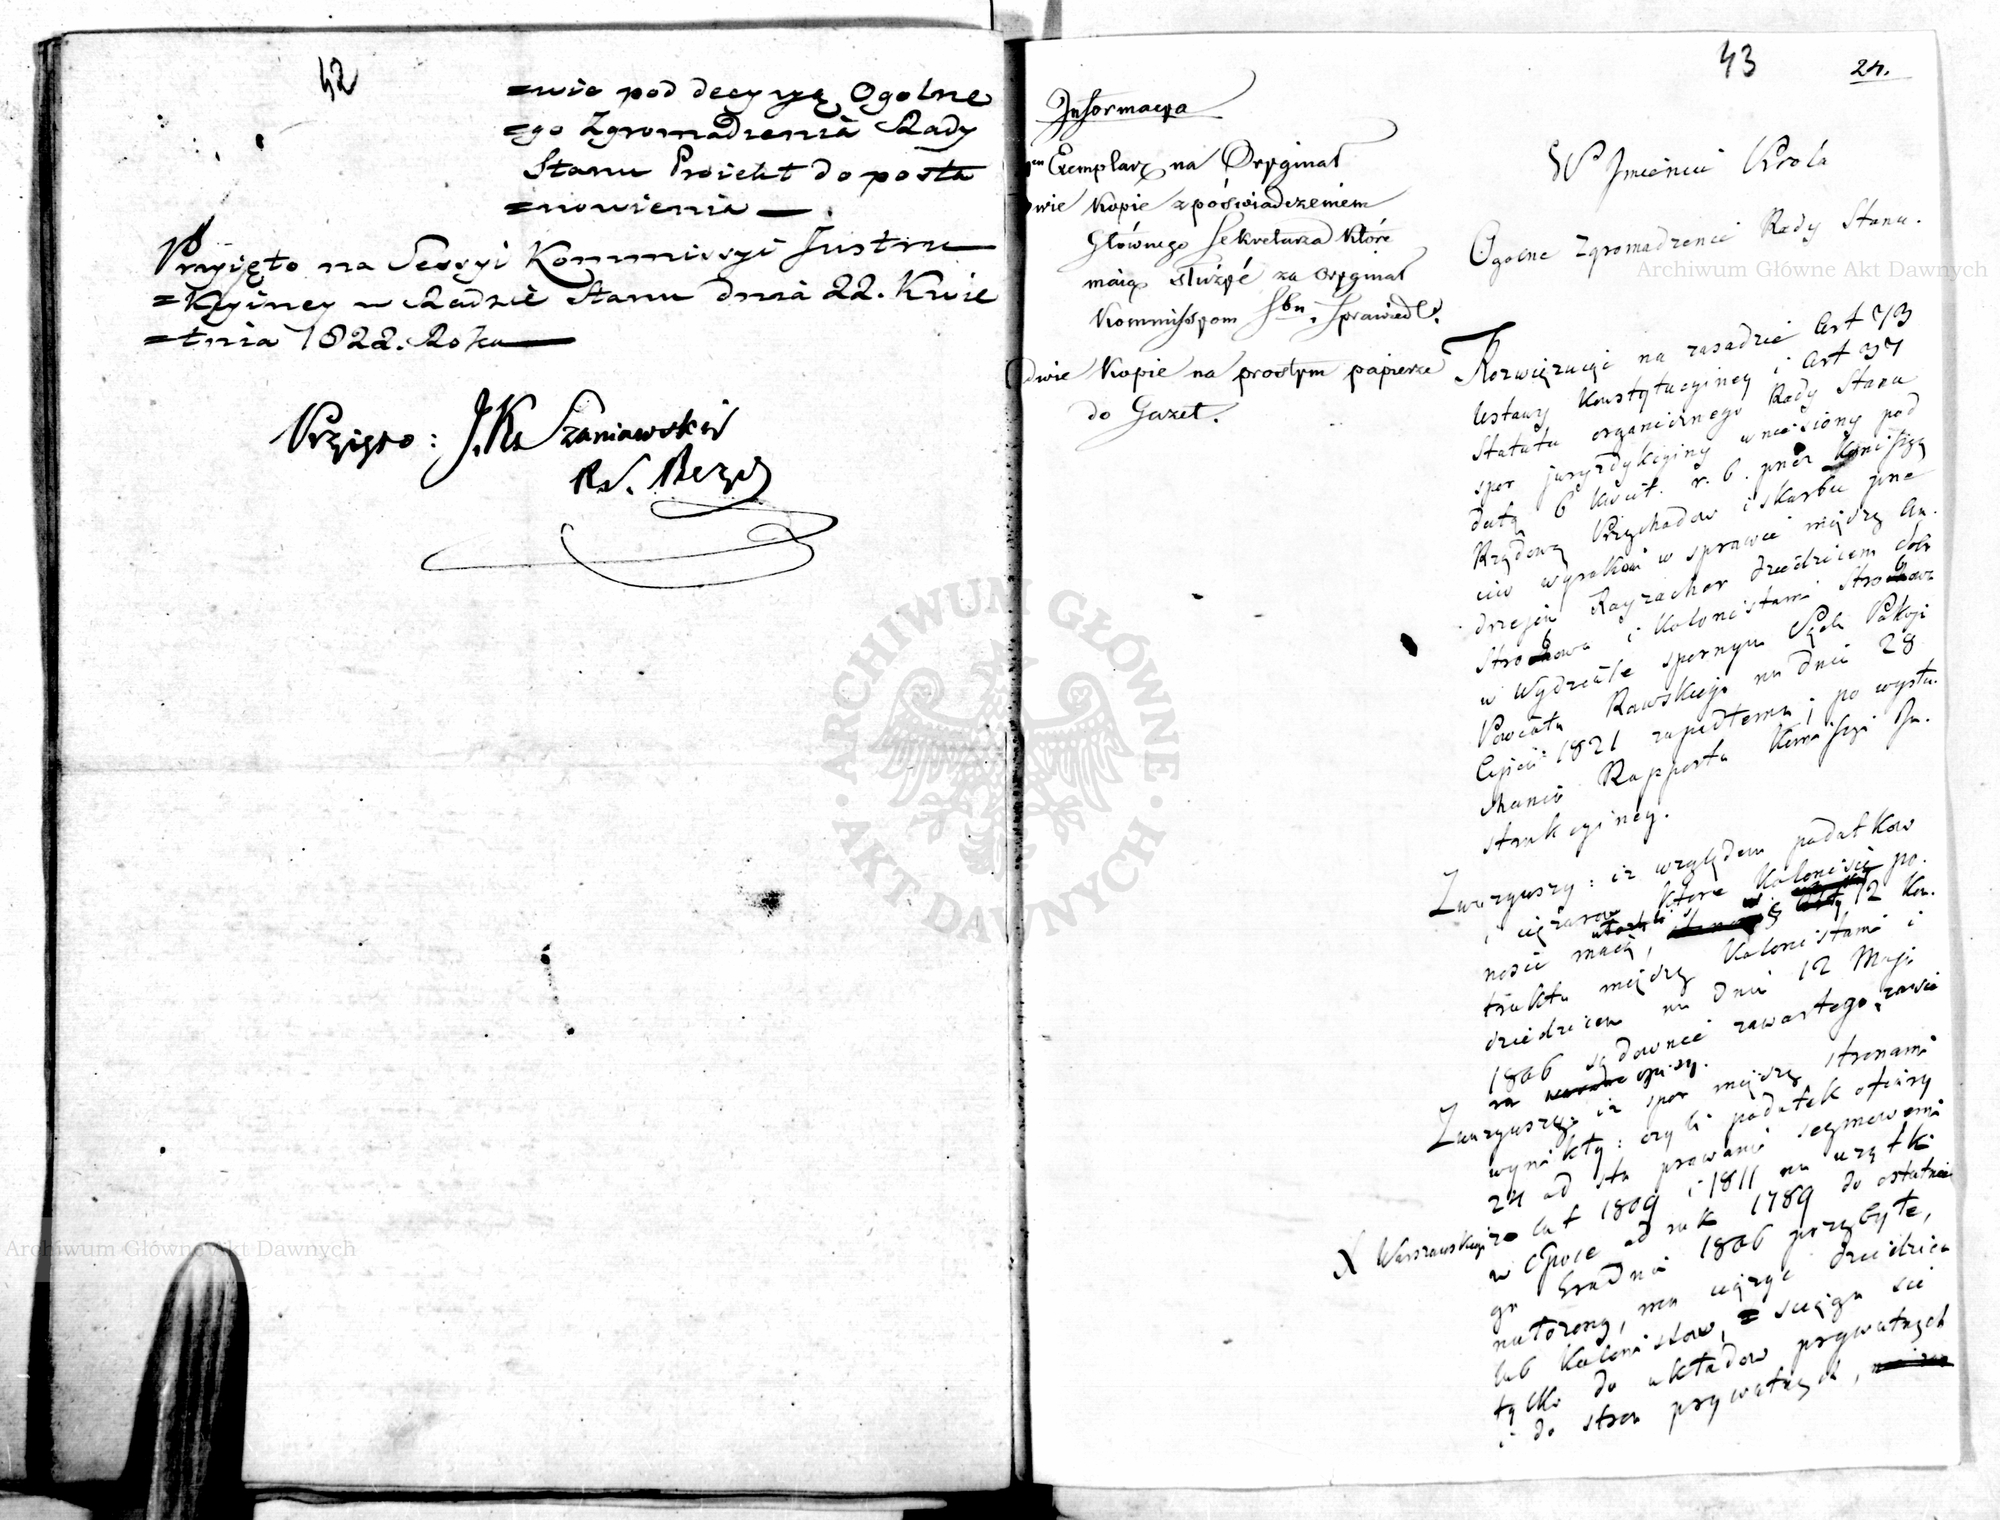 42
=wie pod decyzyą Ogolne
=go Zgromadzenia Rady
Stanu Proiekt do posta
=nowienia —.
Przyięto na Sessyi Kommissyi Instru
=kcyiney w Radzie Stanu dnia 22. Kwie
=tnia 1822. Roku —
Przyięto: J. K. Szaniawski
43
24.
Informacya
Exemplarz na Oryginał
dwie Kopie z poświadczeniem
Głównego Sekretarza które
maią służyć za oryginał
Kommissyom Sprawiedl:
dwie Kopie na prostym papierze
do Gazet.
W Jmieniu Krola
Ogolne Zgromadzenie Rady Stanu.
Rozwięzuiąc na zasadzie Art 73
Ustawy Konstytucyiney i Art 37
Statutu organicznego Rady Stanu
spor juryzdykcyiny wniesiony pod
datą 6 Kwiet. r. b. przez Komissyą
Rządową Przychodow i Skarbu prze
ciw wyrokowi w sprawie między An.
drzejem dziedzicem dobr
i Kolonistami
w Wydziale spornym Sądu Pokoju
Powiatu Rawskiego na dniu 28
Lipca 1821 zapadłemu; po wysłu.
chaniu Rapportu Komissyi In.
strukcyiney.
Zważywszy: iż względem podatkow
i ciężarow które Koloniści po.
nosić maią, § 12 Kon.
traktu między Kolonistami i
dziedzicem na dniu 12 Maja
1806 sądownie zawartego, zawie
ra opisy.
Zważywszy: iż spor między stronami
wynikły: czyli podatek ofiary
24 od sta prawami seymowemi
X Warszawskiego
z lat 1809 i 1811 na wzątki
w Epoce od roku 1789 do ostatnie
go Grudnia 1806 przybyłe,
nałożony, ma ciężyć dziedzica
lub Kolonistow, sciąga się
tylko do układow prywatnych
i do stron prywatnych,